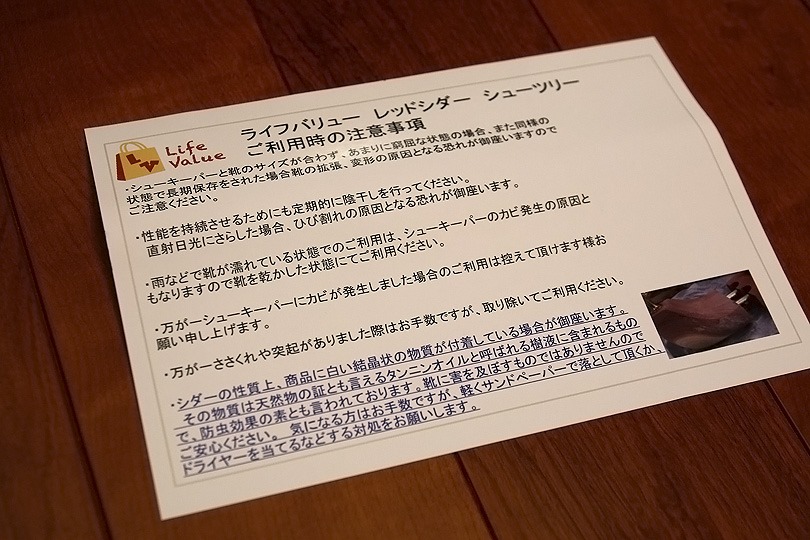 Life
Value
ライフバリュー　レッドシダー　シューツリー
ご利用時の注意事項
・シューキーパーと靴のサイズが合わず、あまりに窮屈な状態の場合、また同様の
状態で長期保存をされた場合靴の拡張、変形の原因となる恐れが御座いますので
ご注意ください。
・性能を持続させるためにも定期的に陰干しを行ってください。
直射日光にさらした場合、ひび割れの原因となる恐れが御座います。
・雨などで靴が濡れている状態でのご利用は、シューキーパーのカビ発生の原因と
もなりますので靴を乾かした状態にてご利用ください。
・万が一シューキーパーにカビが発生しました場合のご利用は控えて頂けます様お
願い申し上げます。
・万が一ささくれや突起がありました際はお手数ですが、取り除いてご利用ください。
・シダーの性質上、商品に白い結晶状の物質が付着している場合が御座います。
その物質は天然物の証とも言えるタンニンオイルと呼ばれる樹液に含まれるもの
で、防虫効果の素とも言われております。靴に害を及ぼすものではありませんので
ご安心ください。　気になる方はお手数ですが、軽くサンドペーパーで落として頂くか、
ドライヤーを当てるなどする対処をお願いします。